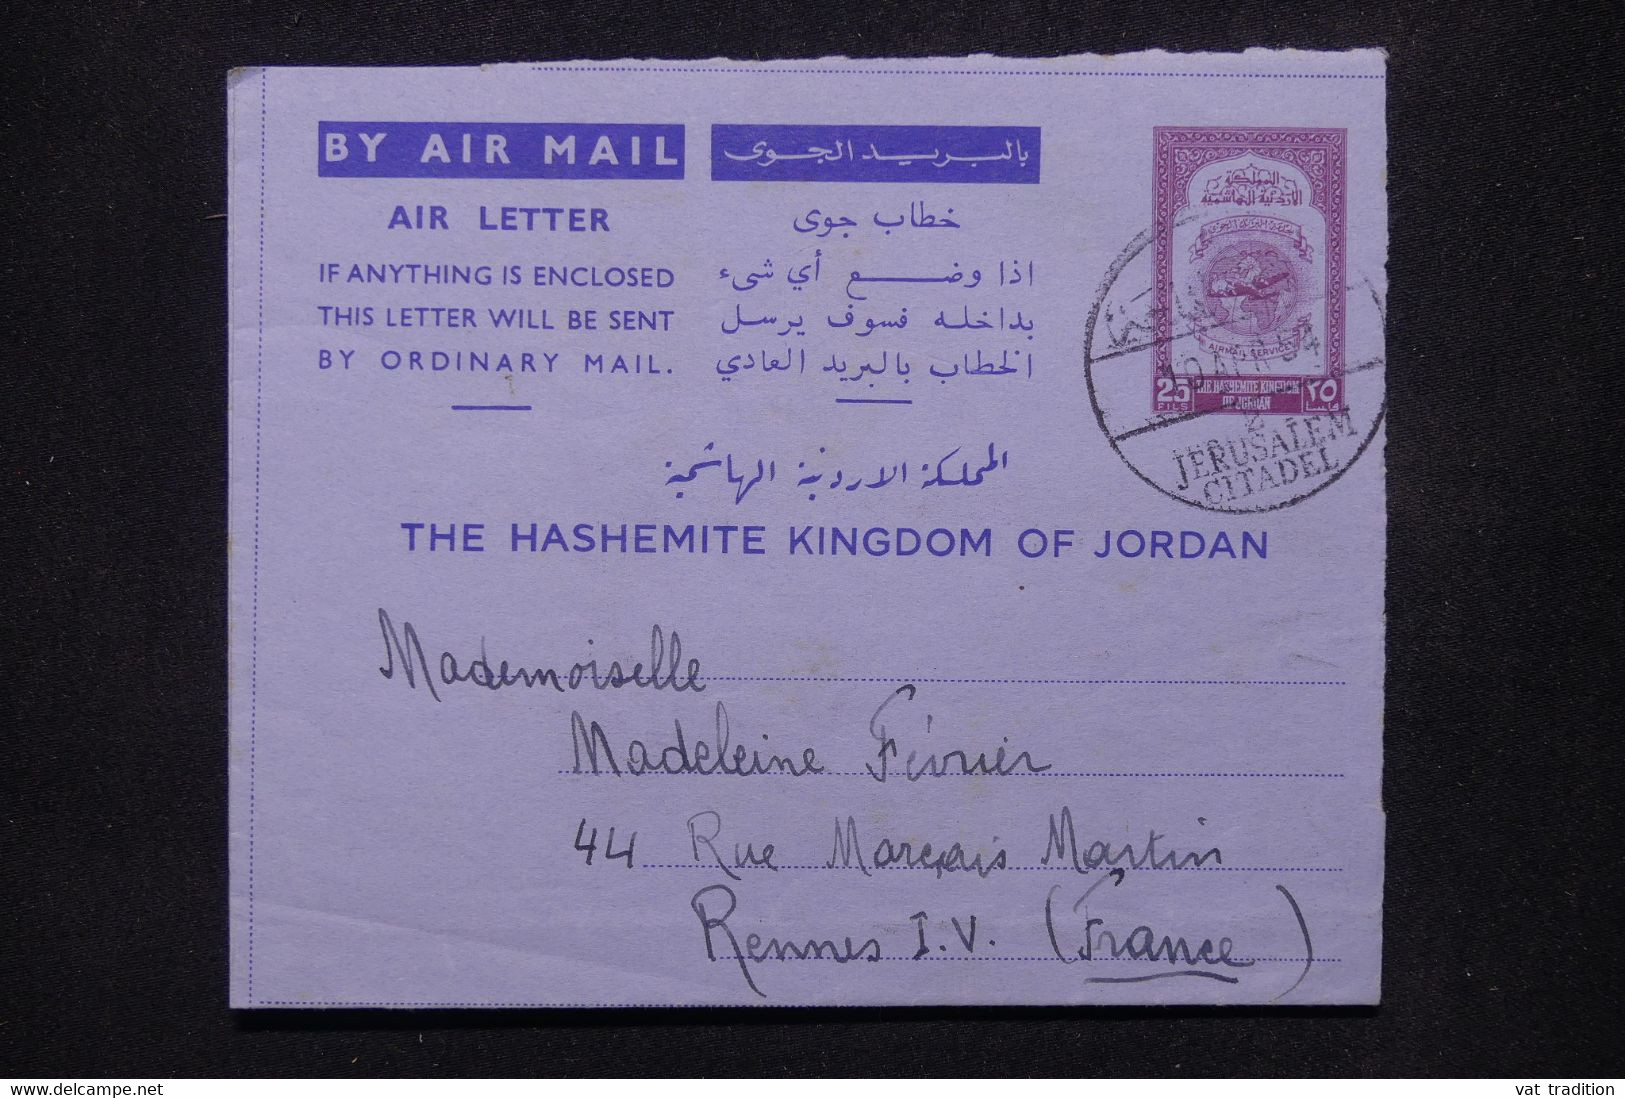 BY AIR MAIL
بالبريد الجوى
AIR LETTER
خطاب جوى
IF ANYTHING IS ENCLOSED
THIS LETTER WILL BE SENT
BY ORDINARY MAIL.
اذا وضع أي شىء
بداخله فسوف يرسل
الخطاب بالبريد العادي
المملكة
الاردنية الهاشمية
AIRMAIL SERVICE
25
FILS
THE HASHEMITE KINGDOM
OF JORDAN
٢٥
فلسا
10 APR 54
JERUSALEM
CITADEL
المملكة الاردنية الهاشمية
THE HASHEMITE KINGDOM OF JORDAN
Mademoiselle
Madeleine Février
44 Rue Marçais Martin
Rennes I.V. (France)
www.delcampe.net
vat_tradition